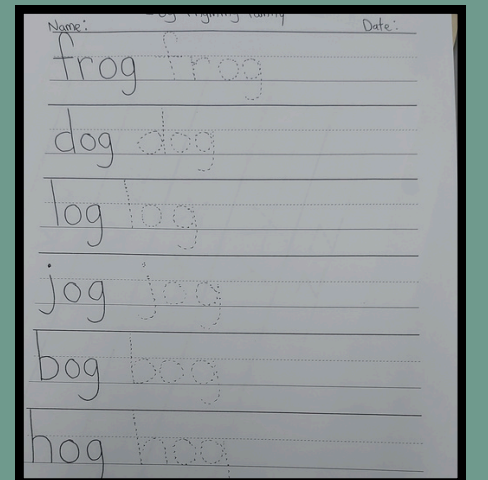 Name: Date:
frog frog
dog dog
log log
jog jog
bog bog
hog hog